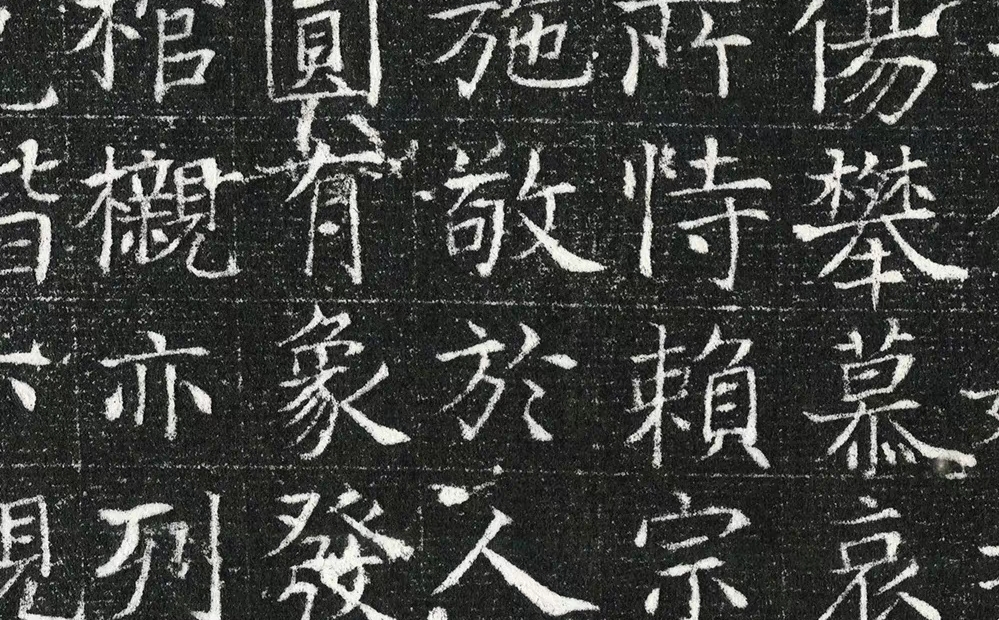 傷攀慕哀
所恃賴宗
施敬於人
圓有象發
棺櫬亦列
皆